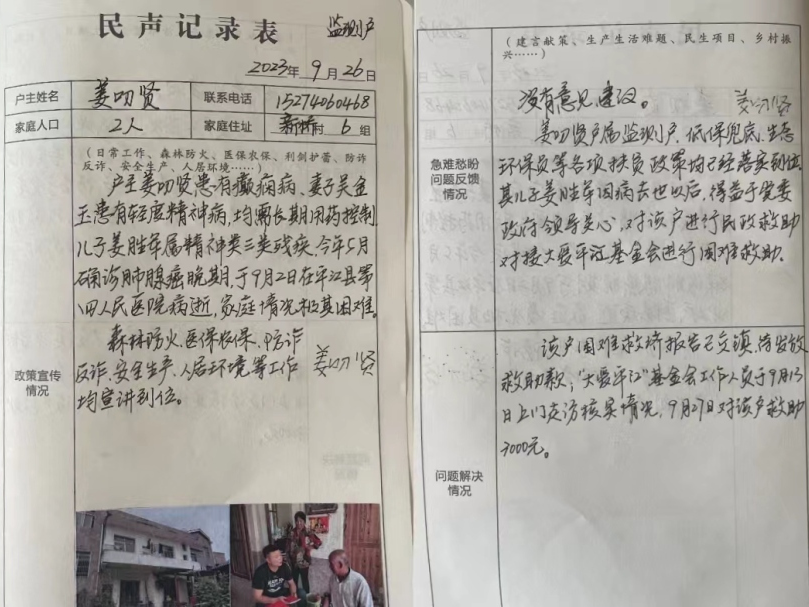 民声记录表
监测户
2023年9月26日
户主姓名 姜叨贤 联系电话 15274060468
家庭人口 2人 家庭住址 新桥村 6组
政策宣传
情况
(日常工作、森林防火、医保农保、利剑护蕾、防诈
反诈、安全生产、人居环境……)
户主姜叨贤患有癫痫病、妻子吴金
玉患有轻度精神病,均需长期用药控制
儿子姜胜军属精神类三类残疾,今年5月
确诊肺腺癌晚期,于9月2日在平江县第
四人民医院病逝,家庭情况极其困难。
森林防火、医保农保、防诈
反诈、安全生产、人居环境等工作
均宣讲到位。
姜叨贤
急难愁盼
问题反馈
情况
(建言献策、生产生活难题、民生项目、乡村振
兴……)
没有意见、建议。
姜叨贤
姜叨贤户属监测户,低保兜底、生态
环保员等各项扶贫政策均已经落实到位.
其儿子姜胜军因病去世以后,得益于党委
政府领导关心,对该户进行民政救助
对接大爱平江基金会进行困难救助.
问题解决
情况
该户困难救济报告已交镇,待发放
救助款;“大爱平江”基金会工作人员于9月13
日上门走访核实情况,9月27日对该户救助
3000元。